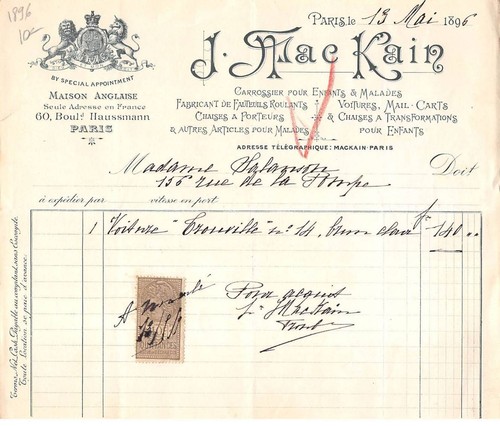 1896
10-
PARIS, le 13 Mai 1896
J. Mac Kain
BY SPECIAL APPOINTMENT
MAISON ANGLAISE
Seule Adresse en France
60, Boulᵈ Haussmann
PARIS
CARROSSIER POUR ENFANTS & MALADES
FABRICANT DE FAUTEUILS ROULANTS
CHAISES A PORTEURS
& AUTRES ARTICLES POUR MALADES
VOITURES, MAIL-CARTS
& CHAISES A TRANSFORMATIONS
POUR ENFANTS
ADRESSE TÉLÉGRAPHIQUE: MACKAIN-PARIS
Madame Doit
156 rue de la Pompe
à expédier par vitesse en port
1 Voiture "Trouville" nº 14, brun clair fr 140 ..
Pour acquit
pr J MacKain
Terme Net Cash, Payable au comptant, sans Escompte.
Toute location se paie d'avance.